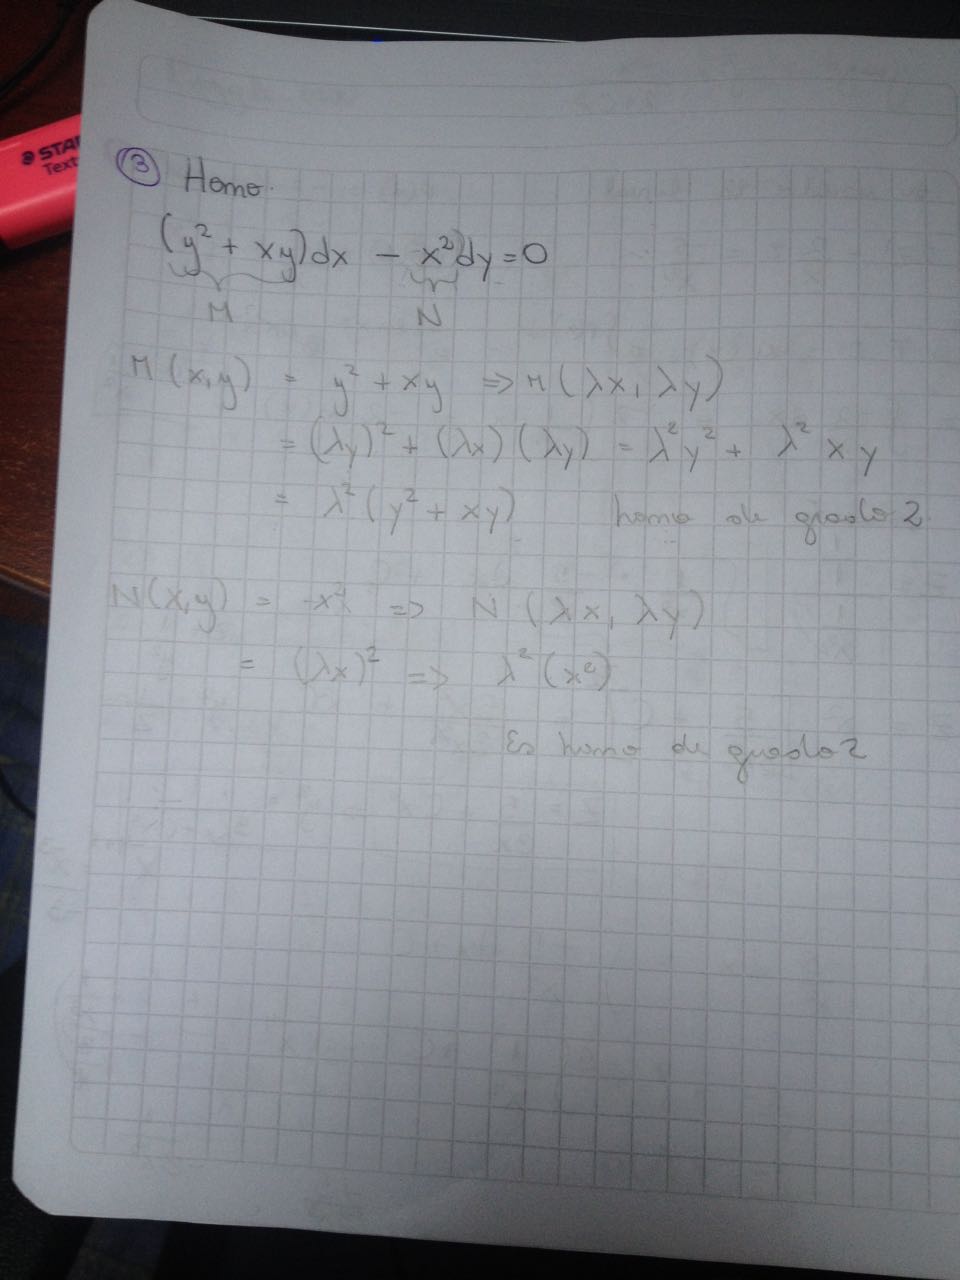 STA
Text
3 Homo.
(y² + xy)dx - x²)dy = 0
M N
M(x,y) = y² + xy => M(λx, λy)
= (λy)² + (λx)(λy) = λ²y² + λ²xy
= λ²(y² + xy) homo de grado 2
N(x,y) = -x² => N(λx, λy)
= (λx)² => λ²(x²)
Es homo de grado 2